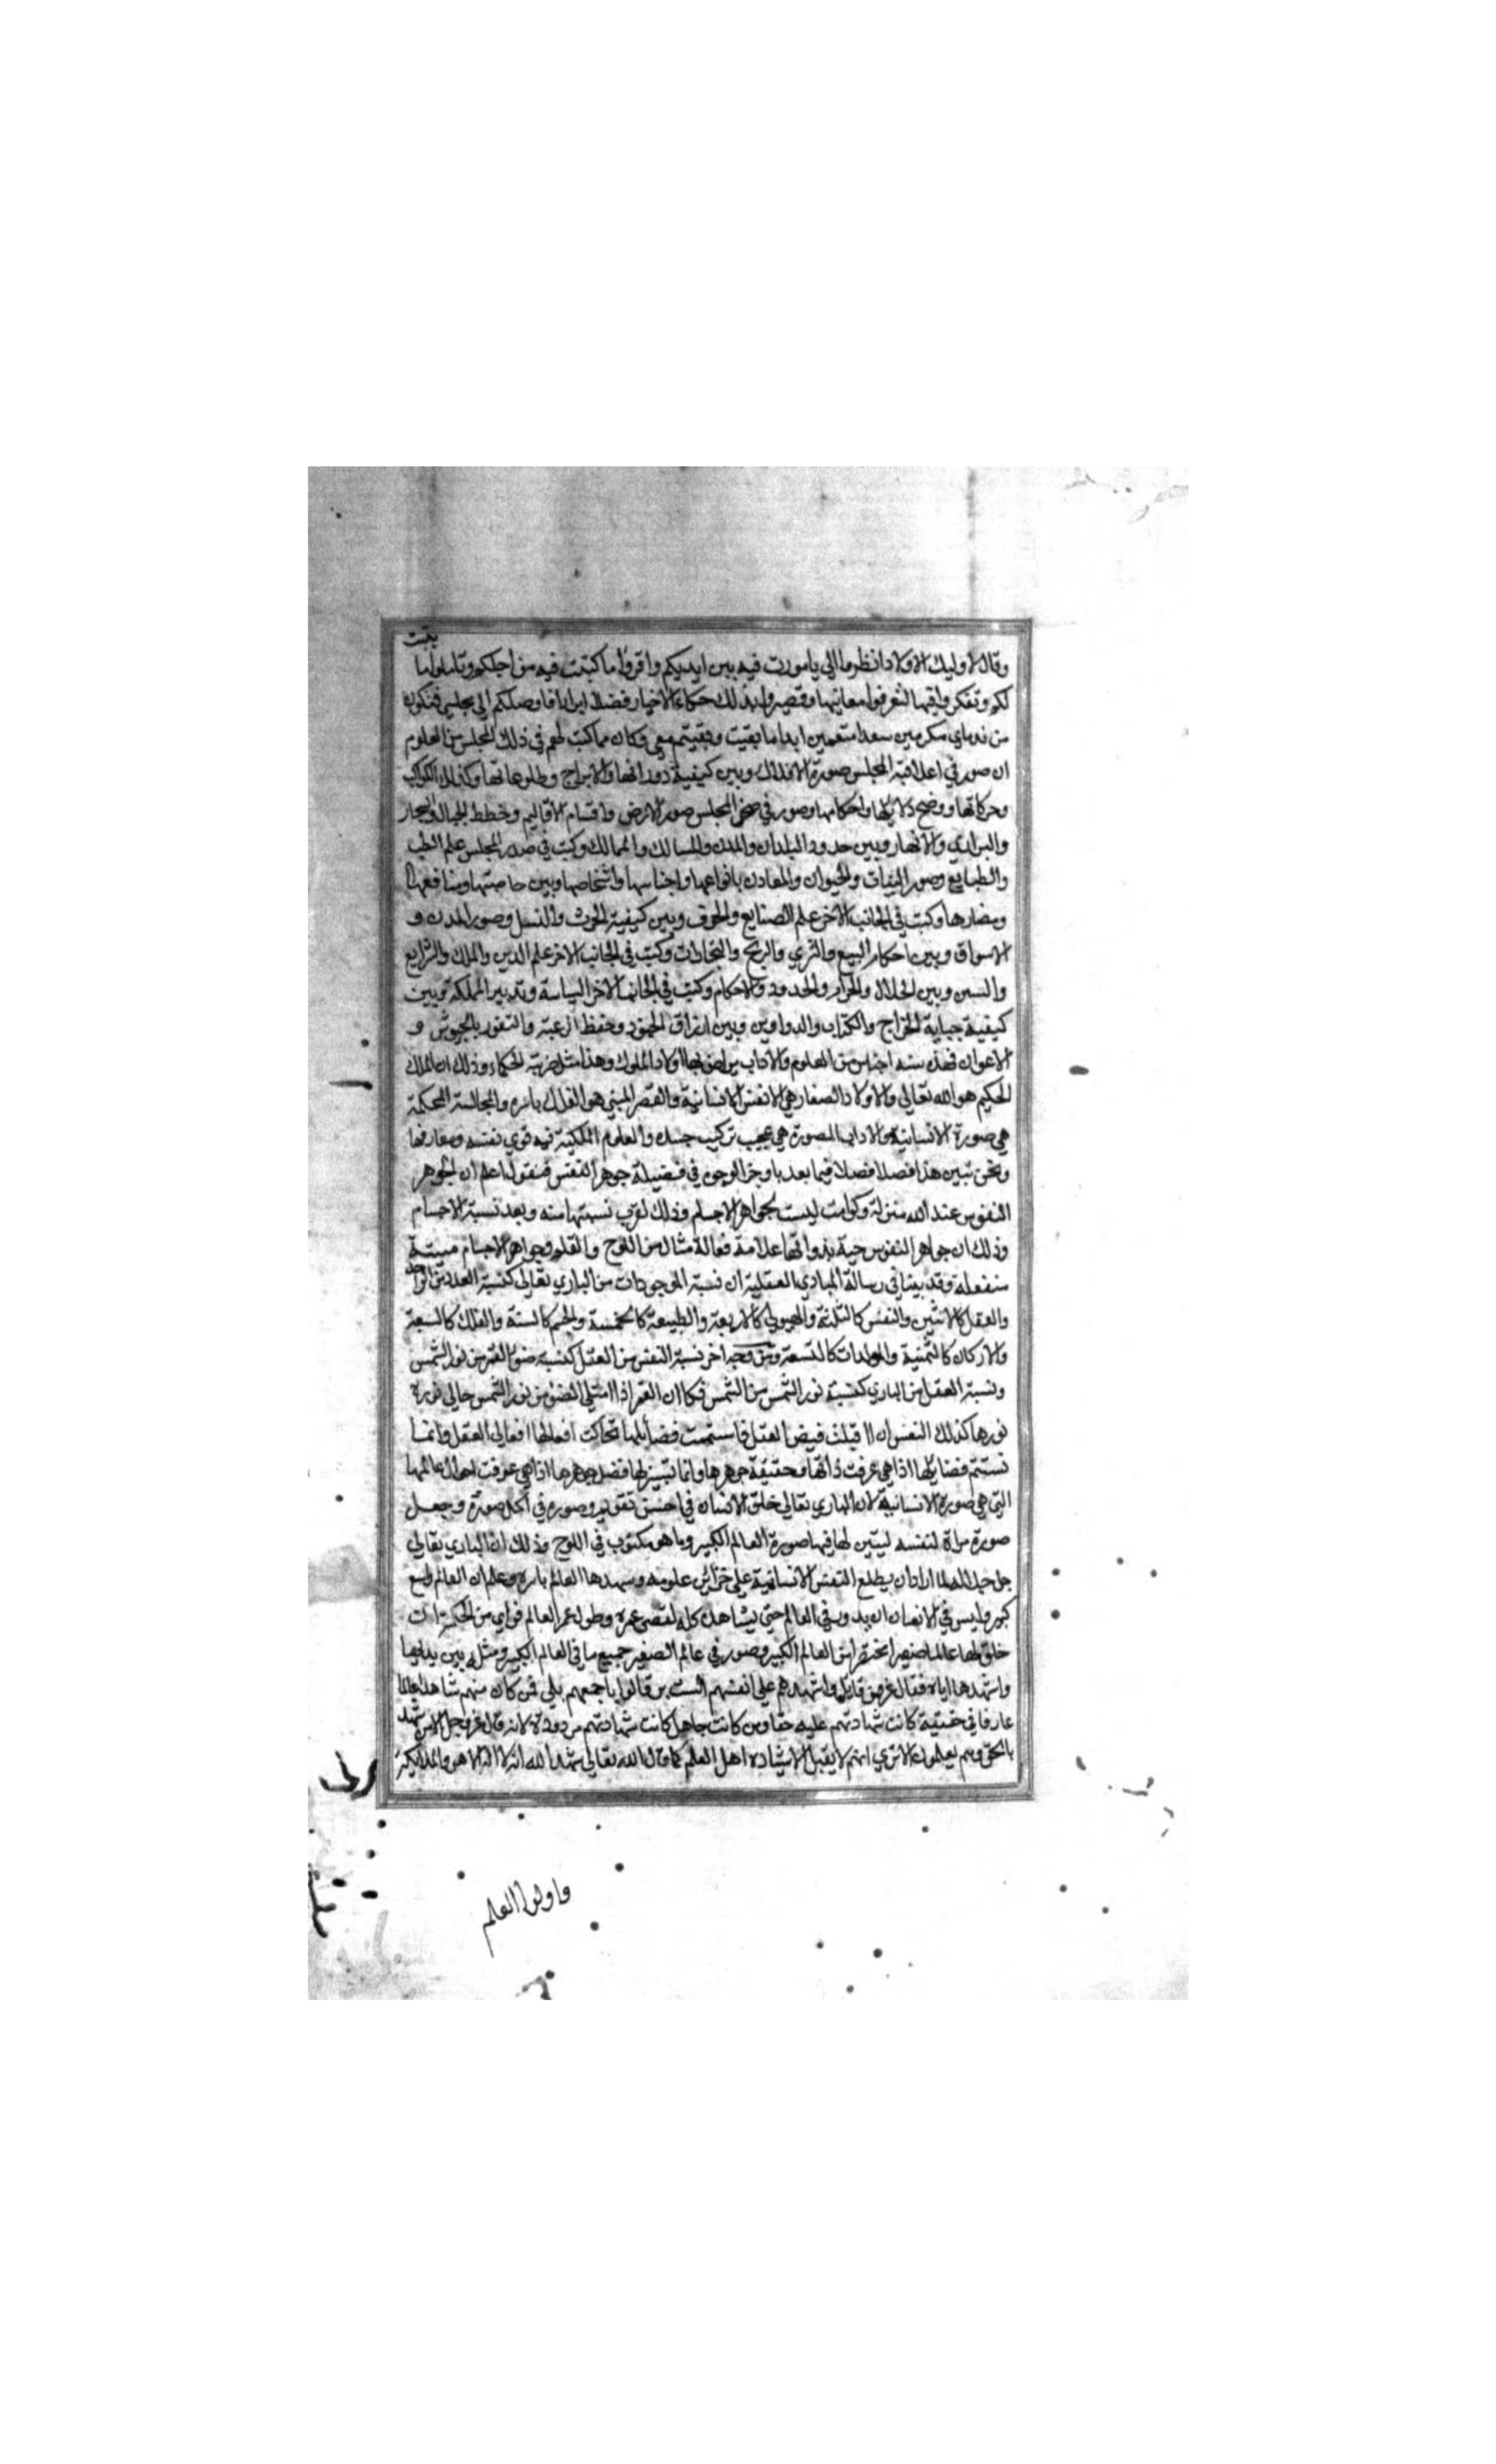 وقال لاوليك الاولاد انظروا الي يا صورت فيه بين ايديكم واقروا ما كتبت فيه من اجلكم وتاملوا ما بقيت
لكم وتفكروا فيها لتعرفوا معانيها وتصيروا بذلك حكماء الاخيار فضلا ابرارا فاوصلكم الي مجلسي فتكونوا
من ندماي مكرمين سعدا متنعمين ابدا ما بقيت وبقيتم معي وكان مما كتب لهم في ذلك المجلس من العلوم
ان صور في اعلا قبة المجلس صورة الافلاك وبين كيفية دورانها والابراج وطلوعاتها وكذلك الكواكب
وحركاتها ووضح دلايلها واحكامها وصور في صحن المجلس صور الارض واقسام الاقاليم وخطط الجبال والبحار
والبراري والانهار وبين حدود البلدان والمدن والمسالك والممالك وكتب في صدر المجلس علم الطب
والطبايع وصور النبات والحيوان والمعادن بانواعها واجناسها واشخاصها وبين خاصتها ومنافعها
ومضارها وكتب في الجانب الاخر علم الصنايع والحرف وبين كيفية الحرث والنسل وصور المدن و
الاسواق وبين احكام البيع والشري والربح والتجارات وكتب في الجانب الاخر علم الدين والملك والشرايع
والسنن وبين الحلال والحرام والحدود والاحكام وكتب في الجانب الاخر السياسة وتدبير المملكة وبين
كيفية جباية الخراج والكتاب والدواوين وبين ارزاق الجنود وحفظ الرعية والثغور بالجيوش و
الاعوان فهذه سته اجناس من العلوم والاداب يراض بها اولاد الملوك وهذا مثل ضربته الحكماء وذلك ان الملك
الحكيم هو الله تعالي والاولاد الصغار هي الانفس الانسانية والقصر المبني هو الفلك باسره والمجالسة المحكمة
هي صورة الانسانية والاداب المصورة هي عجيب تركيب جسده والعلوم المكتبة فيه قوي نفسه ومعارفها
ونحن نبين هذا فصلا فصلا فيما بعد باوجز الوجوه في فضيلة جوهر النفس فنقول اعلم ان لجوهر
النفوس عند الله منزلة وكرامة ليست لجواهر الاجسام وذلك لقرب نسبتها منه وبعد نسبة الاجسام
وذلك ان جواهر النفوس حية بذواتها علامة فعالة مثال من اللوح والقلم وجواهر الاجسام ميتة
منفعله وقد بينا في رسالة المبادي العقلية ان نسبة الموجودات من الباري تعالي كنسبة العدد من الواحد
والعقل كالاثنين والنفس كالثلثة والهيولي كالاربعة والطبيعة كالخمسة والجسم كالستة والفلك كالسبعة
والاركان كالثمنية والمولدات كالتسعة ومن وجه اخر نسبة النفس من العقل كنسبة ضوء القمر من نور الشمس
ونسبة العقل من الباري كنسبة نور الشمس من الشمس فكما ان القمر اذا امتلي الضوء من نور الشمس حاكي نوره
نورها كذلك النفس ان اقبلت فيض العقل فاستتمت فضايلها تحاكت افعالها افعال العقل وانما
تستتم فضايلها اذا هي عرفت ذاتها وحقيقة جوهرها وانما تتبين لها فضل جوهرها اذا هي عرفت احوال عالمها
التي هي صورة الانسانية لان الباري تعالي خلق الانسان في احسن تقويم وصوره في اكمل صورة وجعل
صورة مراة لنفسه ليتبين لها فيها صورة العالم الكبير وما هو مكتوب في اللوح وذلك ان الباري تعالي
جل جلاله لما اراد ان يطلع النفس الانسانية علي خزائن علومه وسهدها العالم باسره وعلم ان العالم واسع
كبير وليس في الانسان ان يدور في العالم حتي يشاهد كله لقصر عمره وطول عمر العالم فراي من الحكمة ان
خلق لها عالما صغيرا مختصرا من العالم الكبير وصور في عالم الصغير جميع ما في العالم الكبير ومثله بين يديها
واشهدها اياه فقال عز من قايل واشهدهم علي انفسهم الست بربكم قالوا باجمعهم بلي فمن كان منهم شاهدا عالما
عارفا في حقيقة كانت شهادتهم عليه حقا ومن كانت جاهل كانت شهادتهم مردودة لانه قال عز وجل الا من شهد
بالحق وهم يعلمون الا تري انهم لا يقبل الا شهاده اهل العلم كما قال الله تعالي شهد الله انه لا اله الا هو والملايكة
واولوا العلم